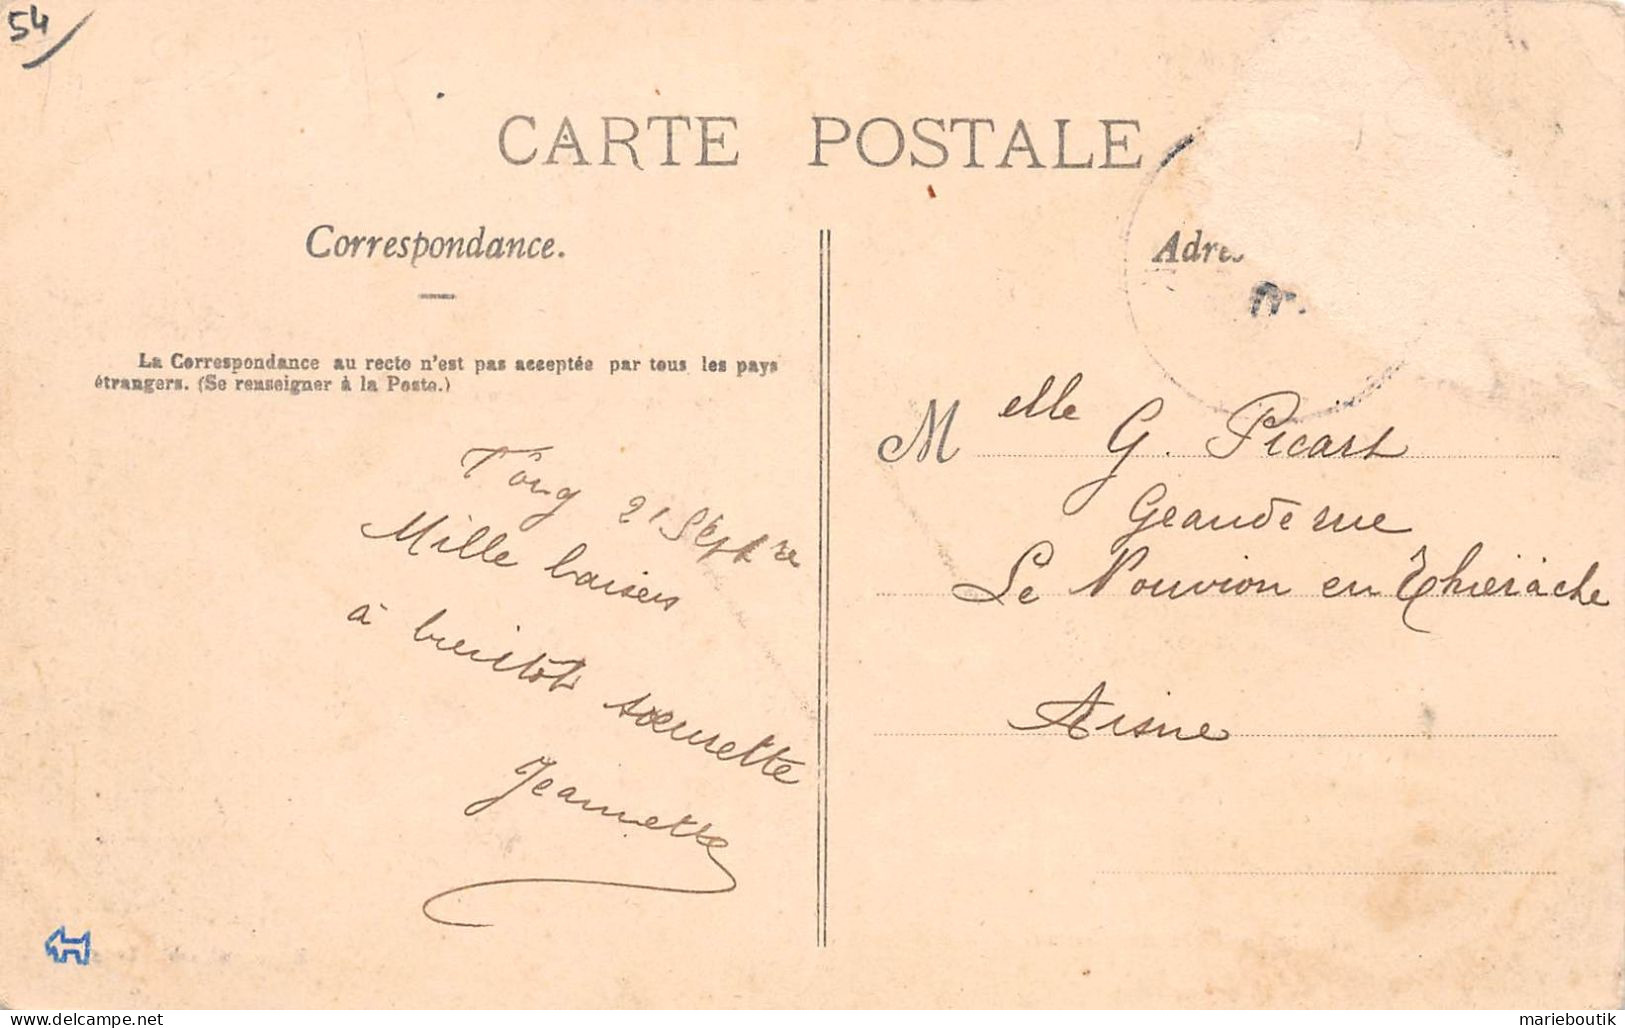 54
CARTE POSTALE
Correspondance.
La Correspondance au recto n'est pas acceptée par tous les pays
étrangers. (Se renseigner à la Poste.)
21 Septre
Mille baisers
à bientôt sœurette
Jeannette
Adre
Melle G. Picart
Le Nouvion en Thiérache
Aisne
www.delcampe.net
marieboutik